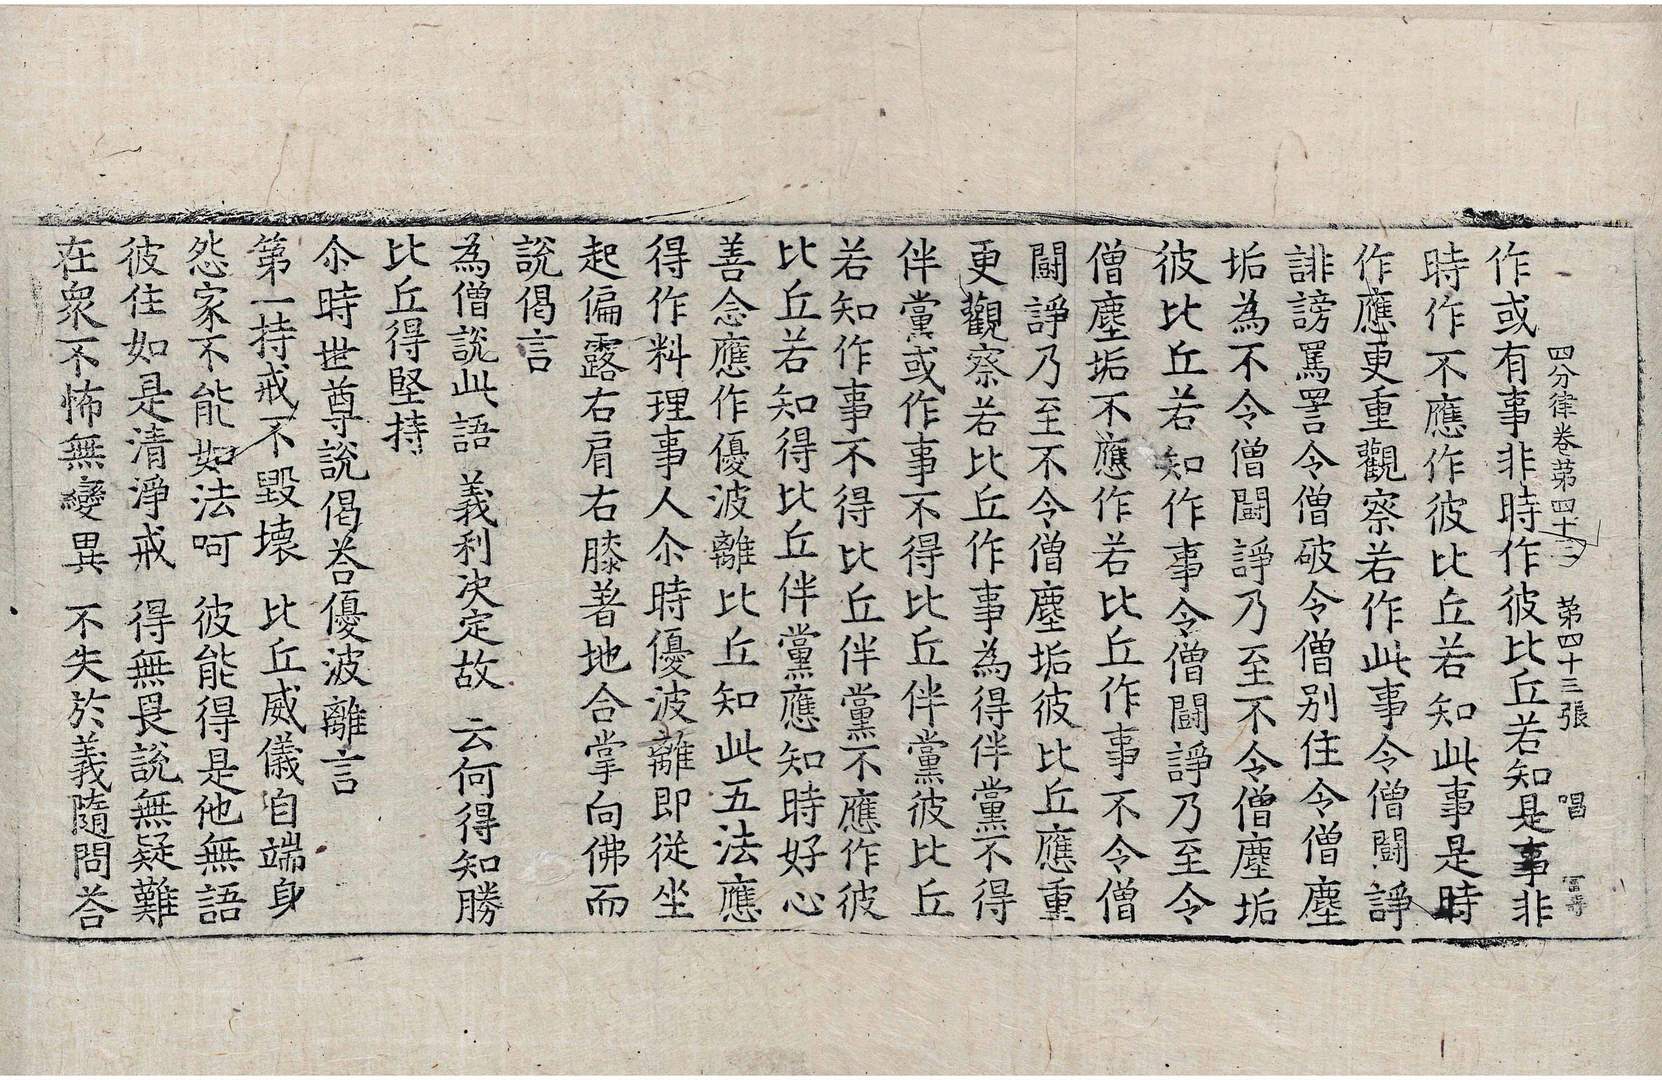 四分律卷第四十三 第四十三張 唱
作或有事非時作彼比丘若知是事非
時作不應作彼比丘若知此事是時
作應更重觀察若作此事令僧鬪諍
誹謗罵詈令僧破令僧别住令僧塵
垢為不令僧鬪諍乃至不令僧塵垢
彼比丘若知作事令僧鬪諍乃至令
僧塵垢不應作若比丘作事不令僧
鬪諍乃至不令僧塵垢彼比丘應重
更觀察若比丘作事為得伴黨不得
伴黨或作事不得比丘伴黨彼比丘
若知作事不得比丘伴黨不應作彼
比丘若知得比丘伴黨應知時好心
善念應作優波離比丘知此五法應
得作料理事人尒時優波離即從坐
起偏露右肩右膝著地合掌向佛而
說偈言
為僧說此語 義利決定故 云何得知勝
比丘得堅持
尒時世尊說偈荅優波離言
第一持戒不毀壞 比丘威儀自端身
怨家不能如法呵 彼能得是他無語
彼住如是清淨戒 得無畏說無疑難
在衆不怖無變異 不失於義隨問荅